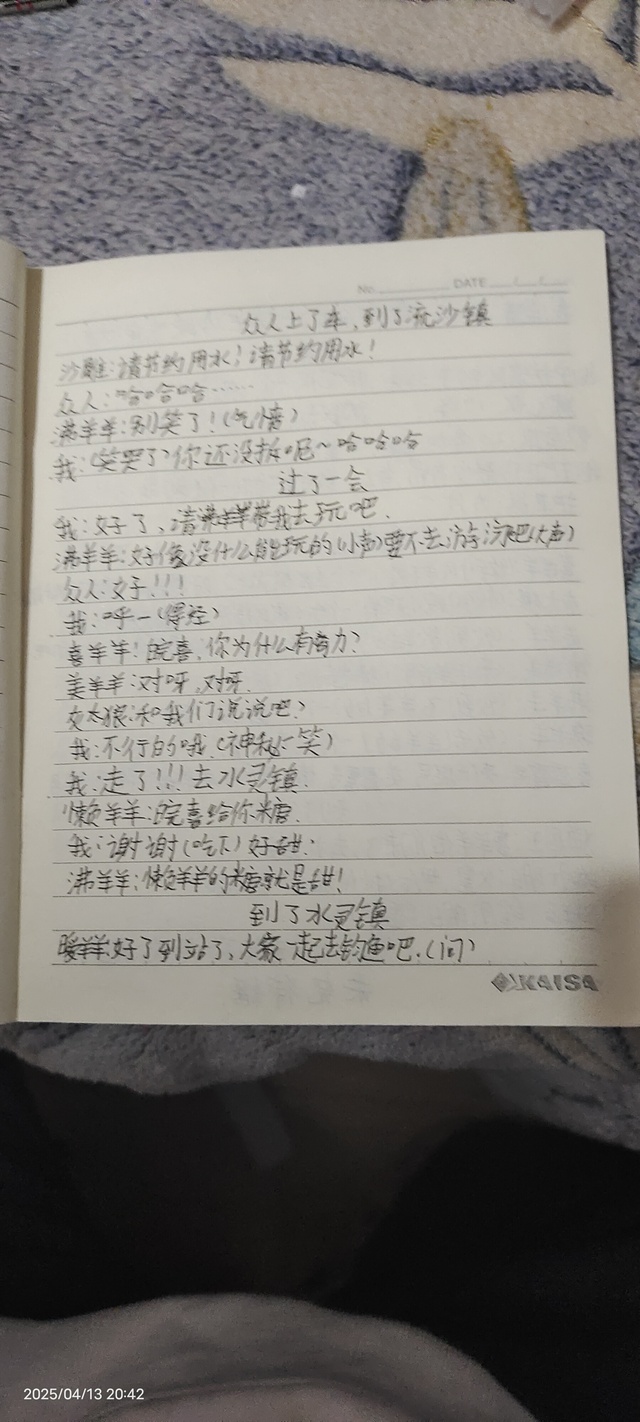 No. DATE / /
众人上了车,到了流沙镇
沙雕:请节约用水!请节约用水!
众人:哈哈哈哈……
沸羊羊:别笑了!(气愤)
我:(笑哭了)你还没拆呢~哈哈哈哈
过了一会
我:好了,请沸羊羊带我去玩吧.
沸羊羊:好像没什么能玩的(小声)要不去游泳吧(大声)
众人:好!!!
我:呼一(得经)
喜羊羊:皖喜,你为什么有奇力?
美羊羊:对呀,对呀.
灰太狼:和我们说说吧?
我:不行的哦.(神秘一笑)
我:走了!!!去水灵镇.
懒羊羊:皖喜给你糖.
我:谢谢(吃下)好甜.
沸羊羊:懒羊羊的糖就是甜!
到了水灵镇
暖羊羊:好了到站了,大家一起去钓鱼吧.(问)
KAISA
2025/04/13 20:42